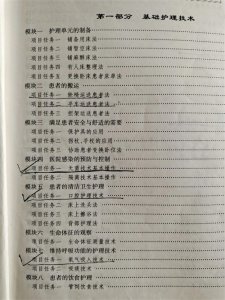 第一部分 基础护理技术
模块一 护理单元的制备
项目任务一 铺备用床法
项目任务二 铺暂空床法
项目任务三 铺麻醉床法
项目任务四 有人床整理法
项目任务五 更换卧床患者床单法
模块二 患者的搬运
项目任务一 轮椅运送患者法
项目任务二 平车运送患者法
项目任务三 担架运送患者法
模块三 满足患者安全与舒适的需要
项目任务一 保护具的应用
项目任务二
项目任务三 协助患者更换卧位法
模块四 医院感染的预防与控制
项目任务一 无菌技术基本操作
项目任务二 隔离技术基本操作
模块五 患者的清洁卫生护理
项目任务一 口腔护理技术
项目任务二 床上洗头法
项目任务三 床上擦浴法
项目任务四 背部护理法
模块六 生命体征的观察
项目任务一 生命体征测量技术
模块七 维持呼吸功能的护理技术
项目任务一 氧气吸入技术
项目任务二 吸痰技术
模块八 患者的饮食护理
项目任务一 管饲饮食技术